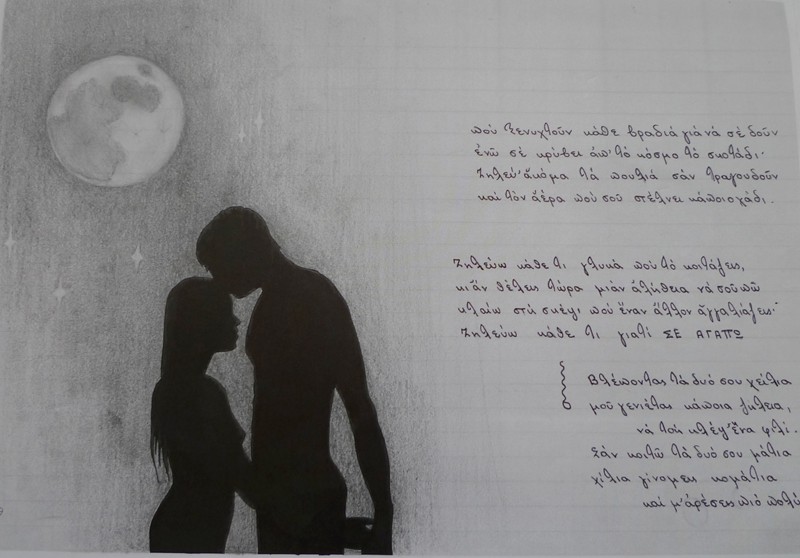 ποὺ ξενυχτοῦν κάθε βραδιὰ γιὰ νὰ σὲ δοῦν
ἐνῶ σὲ κρύβει ἀπ' τὸ κόσμο τὸ σκοτάδι·
Ζηλεύ' ἀκόμα τὰ πουλιὰ σὰν τραγουδοῦν
καὶ τὸν ἀέρα ποὺ σοῦ στέλνει κάποιο χάδι.
Ζηλεύω κάθε τι γλυκὰ ποὺ τὸ κοιτάζεις,
κι ἂν θέλεις τώρα μιὰν ἀλήθεια νὰ σοῦ πῶ
κλαίω στὴ σκέψη ποὺ ἕναν ἄλλον ἀγγαλιάζεις·
Ζηλεύω κάθε τι γιατὶ ΣΕ ΑΓΑΠΩ
Βλέποντας τὰ δυό σου χείλια
μοῦ γενιέται κάποια ζήλεια,
νὰ τοὺς κλέψ' ἕνα φιλί.
Σὰν κοιτῶ τὰ δυό σου μάτια
χίλια γίνομαι κομάτια
καὶ μ' ἀρέσεις πιὸ πολὺ